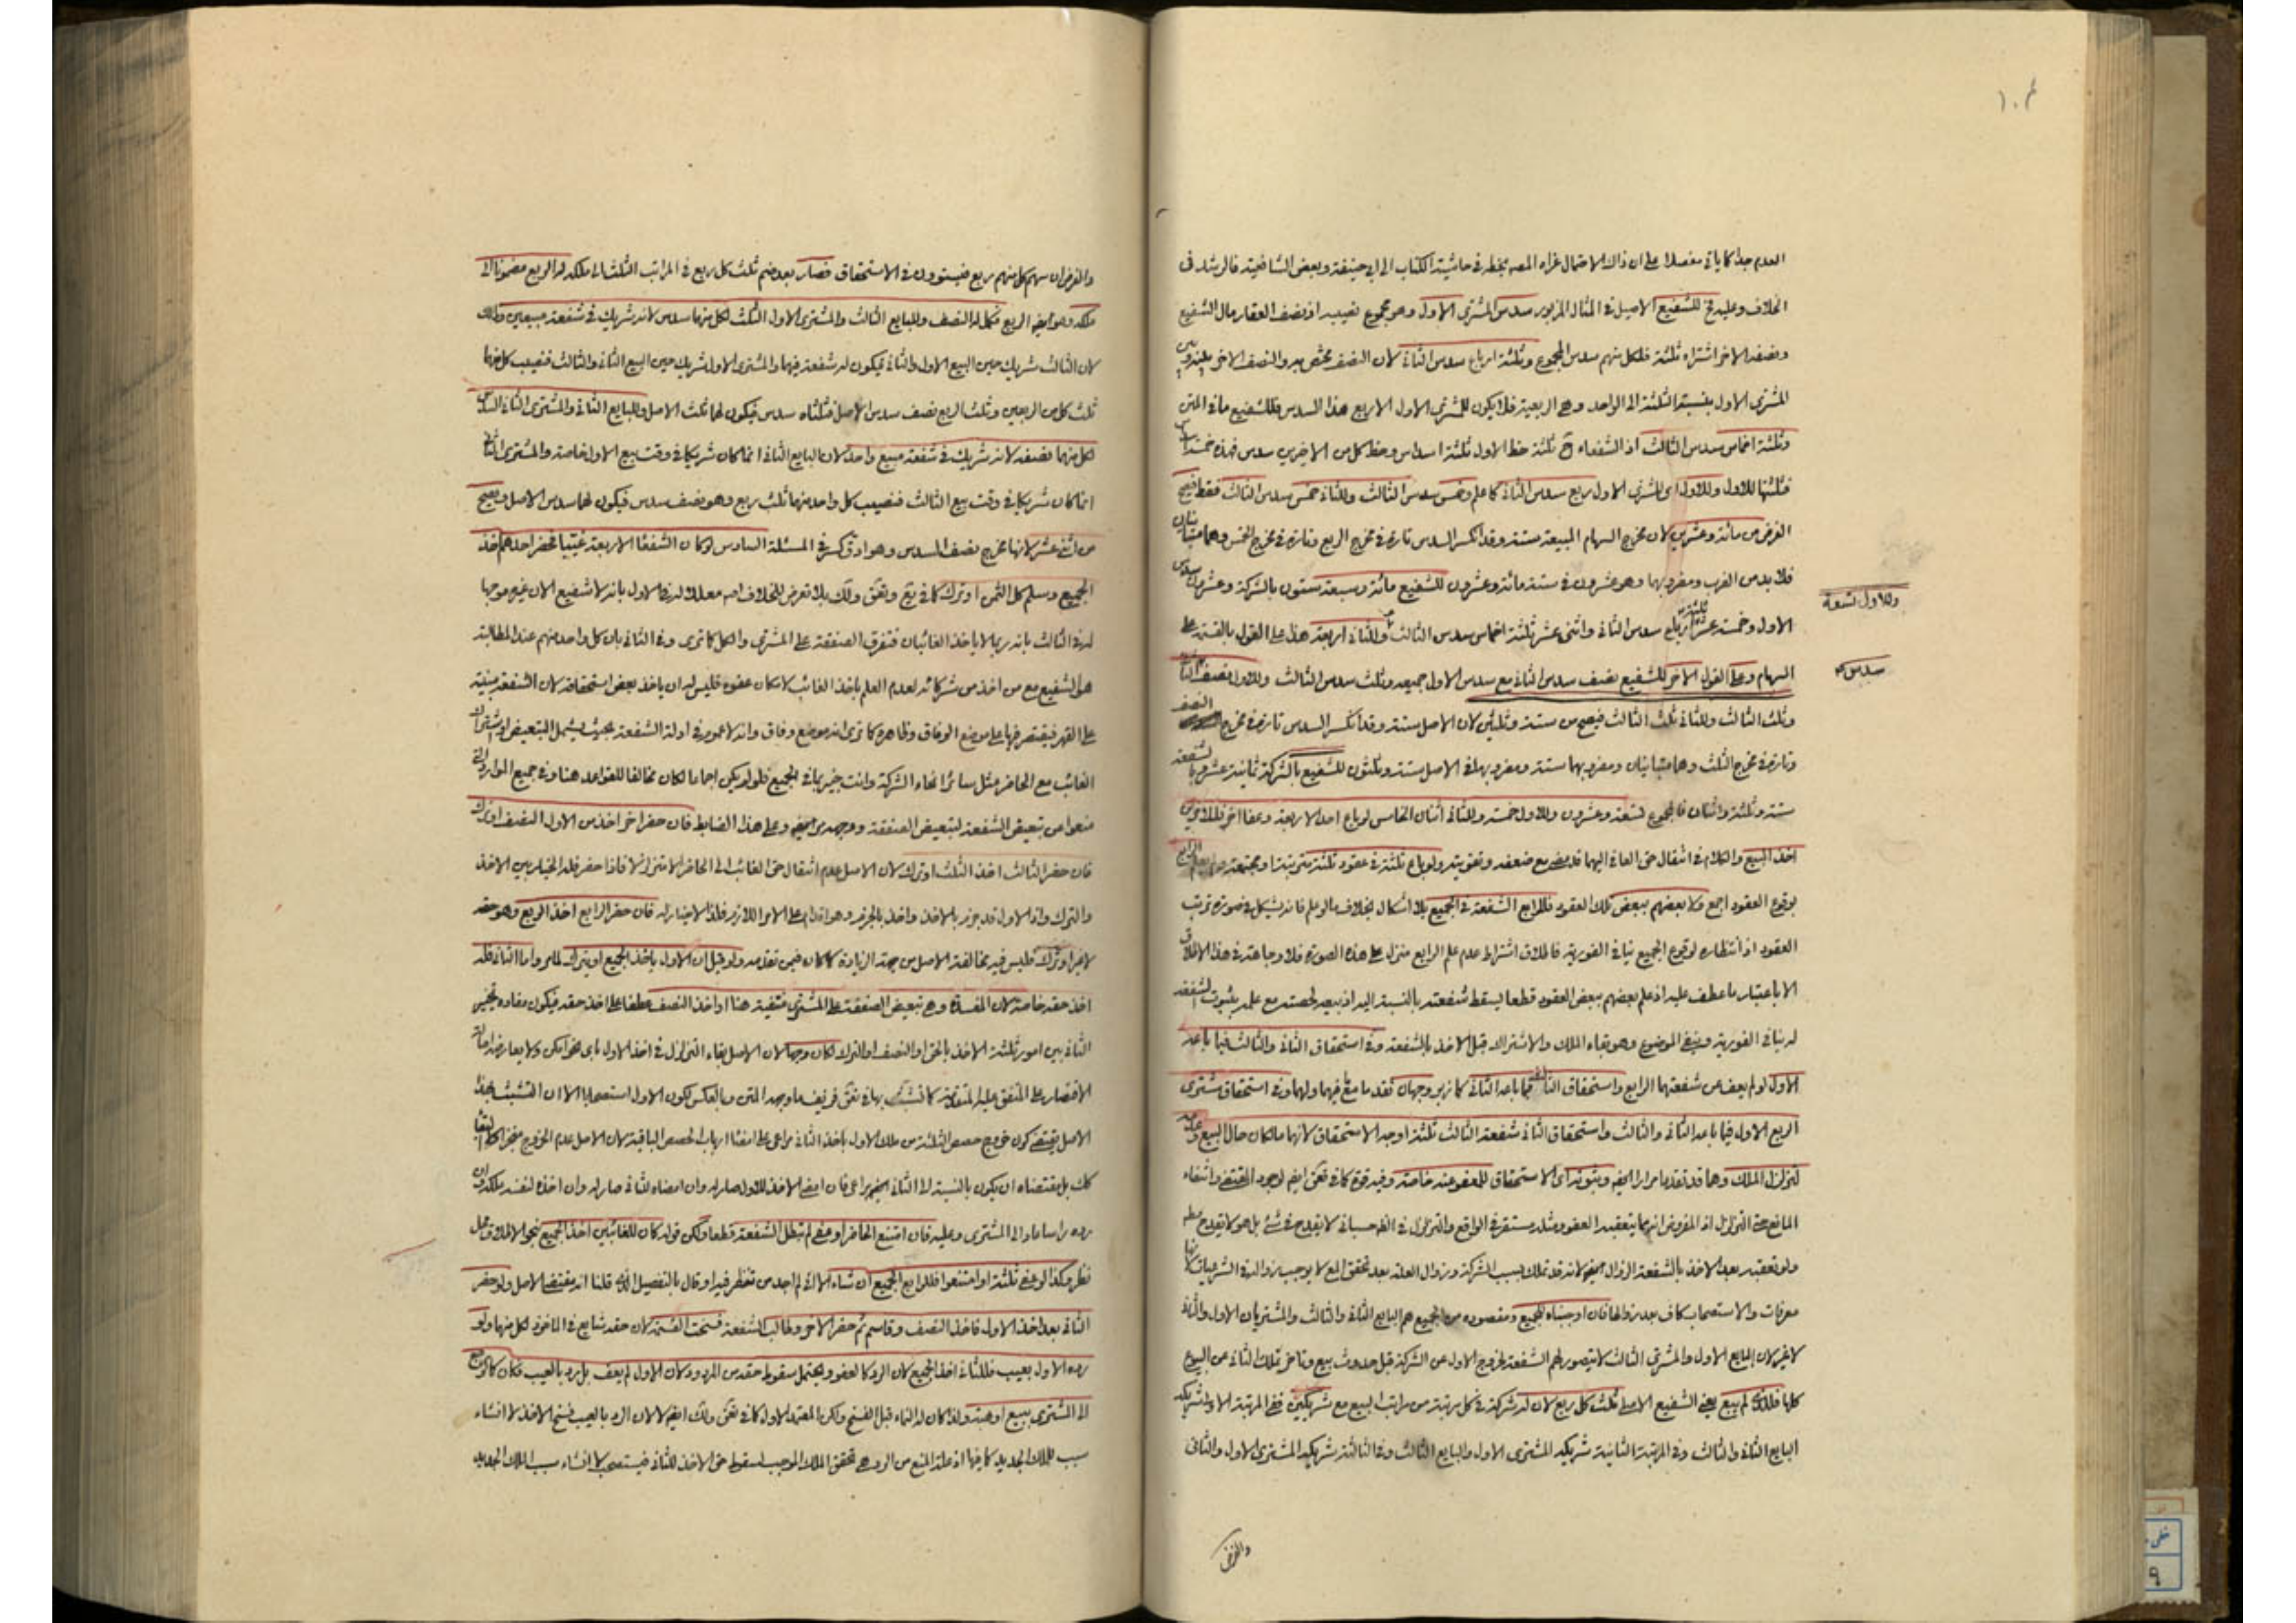 العدم جدا كما ياتي مفصلا على ان ذلك الاحتمال عزاه المصه بخطه في حاشية الكتاب الى ابي حنيفة وبعض الشافعية فالرشد في
الخلاف وعليه فح للشفيع الاصيل في المثال المزبور سدس المشترى الاول وهو مجموع نصيبه اذ نصف العقار مال الشفيع
ونصفه الاخر اشتراه ثلثة فلكل منهم سدس المجموع وثلثة ارباع سدس الثاني لان النصف مختص به والنصف الاخر بينه وبين
المشترى الاول بنسبة الثلثة الى الواحد وهي الربعية فلا يكون للمشترى الاول الا ربع هذا السدس وللشفيع ما في المتن
وثلثة اخماس سدس الثالث اذ الشفعاء ح ثلثة حظ الاول ثلثة اسداس وحظ كل من الاخيرين سدس فهذه خمسة اسداس
فثلثها للاول وللاول اى المشترى الاول ربع سدس الثاني كما علم وخمس سدس الثالث وللثاني خمس سدس الثالث فقط فتصح
الفرض من مائة وعشرين لان مخرج السهام المبيعة ستة وقد انكسر السدس تارة في مخرج الربع وتارة في مخرج الخمس وهما متباينان
فلابد من الضرب ومضروبهما وهو عشرون في ستة مائة وعشرون للشفيع مائة وسبعة ستون بالشركة وعشرون سدس
وللاول تسعة
الاول وخمسة عشر ثلثة ارباع سدس الثاني واثنى عشر ثلثة اخماس سدس الثالث وللثاني اربعة هذا على القول بالقسمة على
السهام وعلى القول الاخر للشفيع نصف سدس الثاني مع سدس الاول جميعه وثلث سدس الثالث وللاول نصف الثاني
سدس
وثلث الثالث وللثاني ثلث الثالث فيصح من ستة وثلثين لان الاصل ستة وقد انكسر السدس تارة في مخرج النصف
وتارة في مخرج الثلث وهما متباينان ومضروبهما ستة ومضروبها في الاصل ستة وثلثون للشفيع بالشركة ثمانية عشر وبالشفعة
ستة وثلثة واثنان فالمجموع تسعة وعشرون وللاول خمسة وللثاني اثنان الخامس لو باع احد الاربعة وعفا اخر فللاخرين
اخذ المبيع والكلام في انتقال حق العافي اليهما قد مضى مع ضعفه وتقويته ولو باع ثلثة في عقود ثلثة مترتبة او مجتمعة ولم يعلم الرابع
بوقوع العقود اجمع ولا بعضهم ببعض تلك العقود فللرابع الشفعة في الجميع بلا اشكال بخلاف ما لو علم فانه يشكل في صورة ترتب
العقود اذ انتظاره لوقوع الجميع ينافي الفورية فاطلاق اشتراط عدم علم الرابع منزل على هذه الصورة فلا وجاهة في هذا الاطلاق
الا باعتبار ما عطف عليه اذ علم بعضهم ببعض العقود قطعا يسقط شفعته بالنسبة اليه اذ بيعه لحصته مع علمه بثبوت الشفعة
له ينافي الفورية وينفي الموضوع وهو بقاء الملك والاشتراك قبل الاخذ بالشفعة وفي استحقاق الثاني والثالث فيما باعه
الاول لو لم يعف عن شفعتهما الرابع واستحقاق الثالث فيما باعه الثاني كما زبر وجهان تقدما مع ما فيهما ولهما وفي استحقاق مشترى
الربع الاول فيما باعه الثاني والثالث واستحقاق الثاني شفعة الثالث ثلثة اوجه الاستحقاق لانهما مالكان حال البيع وعدمه
لتزلزل الملك وهما قد تقدما مرارا ايضه وثبوته اى الاستحقاق للمعفو عنه خاصة وفيه قوة كما في نفحق ايضه لوجود المقتضى وانتفاء
المانع حتى التزلزل اذ المفروض انهما يتعقبه العفو ومثله مستقر في الواقع والتزلزل في الظ حسبانى لا يقدح في شئ بل هو لا يقدح مطلقا
ولو تعقبه بعد الاخذ بالشفعة الزوال ايضه لانه قد تملك بسبب الشركة وزوال العلة بعد تحقق المع لا يوجب زواله في الشرعيات لانها
معرفات والاستصحاب كاف بعد زوالها فان اوجبناه للجميع ومقصوده من الجميع هم البايع الثاني والثالث والمشتريان الاول والثاني
لا غير لان البايع الاول والمشترى الثالث لا يتصور لهم الشفعة لخروج الاول عن الشركة قبل حدوث بيع وتاخر تملك الثاني عن البيوع
كلها فللذى لم يبع يعني الشفيع الاصلي ثلث كل ربع لان له شركة في كل مرتبة من مراتب البيع مع شريكين ففي المرتبة الاولى شريكه
البايع الثاني والثالث وفي المرتبة الثانية شريكيه المشترى الاول والبايع الثالث وفي الثالثة شريكيه المشترى الاول والثاني
والفرض
والفرض ان سهم كل منهم ربع فيستوون في الاستحقاق فصار بعد ضم ثلث كل ربع في المراتب الثلث الى ملكه له الربع مضموما الى
ملكه وهو ايضه الربع فكمل له النصف وللبايع الثالث والمشترى الاول الثلث لكل منهما سدس لانه شريك في شفعة مبيعين وذلك
لان الثالث شريك حين البيع الاول والثاني فيكون له شفعة فيهما والمشترى الاول شريك حين البيع الثاني والثالث فنصيب كل منهما
ثلث كل من الربعين وثلث الربع نصف سدس الاصل فثلثاه سدس فيكون لهما ثلث الاصل وللبايع الثاني والمشترى الثاني السدس
لكل منهما نصفه لانه شريك في شفعة مبيع واحد لان البايع الثاني انما كان شريكا في وقت بيع الاول خاصة والمشترى الثاني
انما كان شريكا في وقت بيع الثالث فنصيب كل واحد منهما ثلث ربع وهو نصف سدس فيكون لهما سدس الاصل ويصح
من اثنى عشر لانها مخرج نصف السدس وهو ادق كسر في المسئلة السادس لو كان الشفعا الاربعة غيبا فحضر احدهم اخذ
الجميع وسلم كل الثمن او ترك كما في يع ونفق ولك بلا تعرض للخلاف اصه معللا له في الاول بانه لا شفيع الان غيره موجها
له في الثالث بانه ربما لا ياخذ الغائبان فتفرق الصفقة على المشترى والكل كما ترى وفي الثاني بان كل واحد منهم عند المطالبة
هو الشفيع مع من اخذ من شركائه لعدم العلم باخذ الغائب لامكان عفوه فليس له ان ياخذ بعض استحقاقه لان الشفعة مبنية
على القهر فيقتصر فيها على موضع الوفاق وظاهره كما ترى انه موضع وفاق وانه لا عموم في ادلة الشفعة بحيث يشمل التبعيض او اشتراك
الغائب مع الحاضر مثل سائر انحاء الشركة وانت خبير بما في الجميع فلو لم يكن اجماعا لكان مخالفا للقواعد هنا وفي جميع الموارد التي
منعوا من تبعيض الشفعة لتبعيض الصفقة ووجهه دى ايضه وعلى هذا الضابط فان حضر اخر اخذ من الاول النصف او ترك
فان حضر الثالث اخذ الثلث او ترك لان الاصل عدم انتقال حق الغائب الى الحاضر الا متزلزلا فاذا حضر فله الخيار بين الاخذ
والترك واذ الاول قد جوز بالاخذ واخذ بالجزم وهو اقدام على الامر اللازم فلذا لا خيار له فان حضر الرابع اخذ الربع وهو حقه
لا غير او ترك فليس فيه مخالفة الاصل من جهة الزيادة كما كان فيمن تقدمه ولو قيل ان الاول ياخذ الجميع او يترك لما مر واما الثاني فله
اخذ حقه خاصة لان المفسدة وهي تبعيض الصفقة على المشترى منتفية هنا او اخذ النصف عطفا على اخذ حقه فيكون مفاده تخيير
الثاني بين امور ثلثة الاخذ بالحق او النصف او الترك لكان وجها لان الاصل بقاء التزلزل في اخذ الاول باى نحو امكن ولا يعارضه اصالة
الاقتصار على المتفق عليه المتقدمة كما تشبث بها في نفحق فزيف ما وجهه المتن وبالعكس لكون الاول استصحابا الا ان التشبث بهذا
الاصل يقتضي كون خروج حصص الثلثة من ملك الاول باخذ الثاني مراعى على امضاء ارباب الحصص الباقية لان الاصل عدم الخروج منجزا
كك بل مقتضاه ان يكون بالنسبة الى الثاني ايضه مراعى فان امضى الاخذ للاول صار له وان امضاه للثاني صار له وان اخذه لنفسه ملكه وان
رده راسا عاد الى المشترى وعليه فان امتنع الحاضر او عفى لم تبطل الشفعة قطعا ولكن قوله كان للغائبين اخذ الجميع بنحو الاطلاق محل
نظر وكذا لو عفى ثلثة او امتنعوا فللرابع الجميع ان شاء الا انى لم اجد من تنظر فيه او قال بالتفصيل الذى قلنا انه مقتضى الاصل ولو حضر
الثاني بعد اخذ الاول فاخذ النصف وقاسم ثم حضر الاخر وطالب الشفعة فسخت القسمة لان حقه شايع في الماخوذ لكل منهما ولو
رده الاول بعيب فللثاني اخذ الجميع لان الرد كالعفو ويحتمل سقوط حقه من المردود لان الاول لم يعف بل رد بالعيب فكان كما لو رجع
الى المشترى ببيع او هبة ولذا كان له النماء قبل الفسخ ولكن المعتمد الاول كما في نفحق ولك ايضه لان الرد بالعيب فسخ الاخذ لا انشاء
سبب للملك الجديد كما فيها اذ علة المنع من الرد هي تحقق الملك الموجب لسقوط حق الاخذ للثاني فيستصحب لا انشاء سبب الملك الجديد